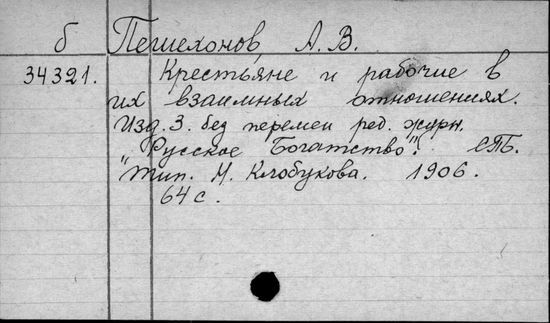 б Пешехонов, А. В.
34321. Крестьяне и рабочие в
их взаимных отношениях.
Изд. 3. без перемен ред. журн.
"Русское Богатство". СПБ.
Тип. Н. Клобукова. 1906.
64 с.